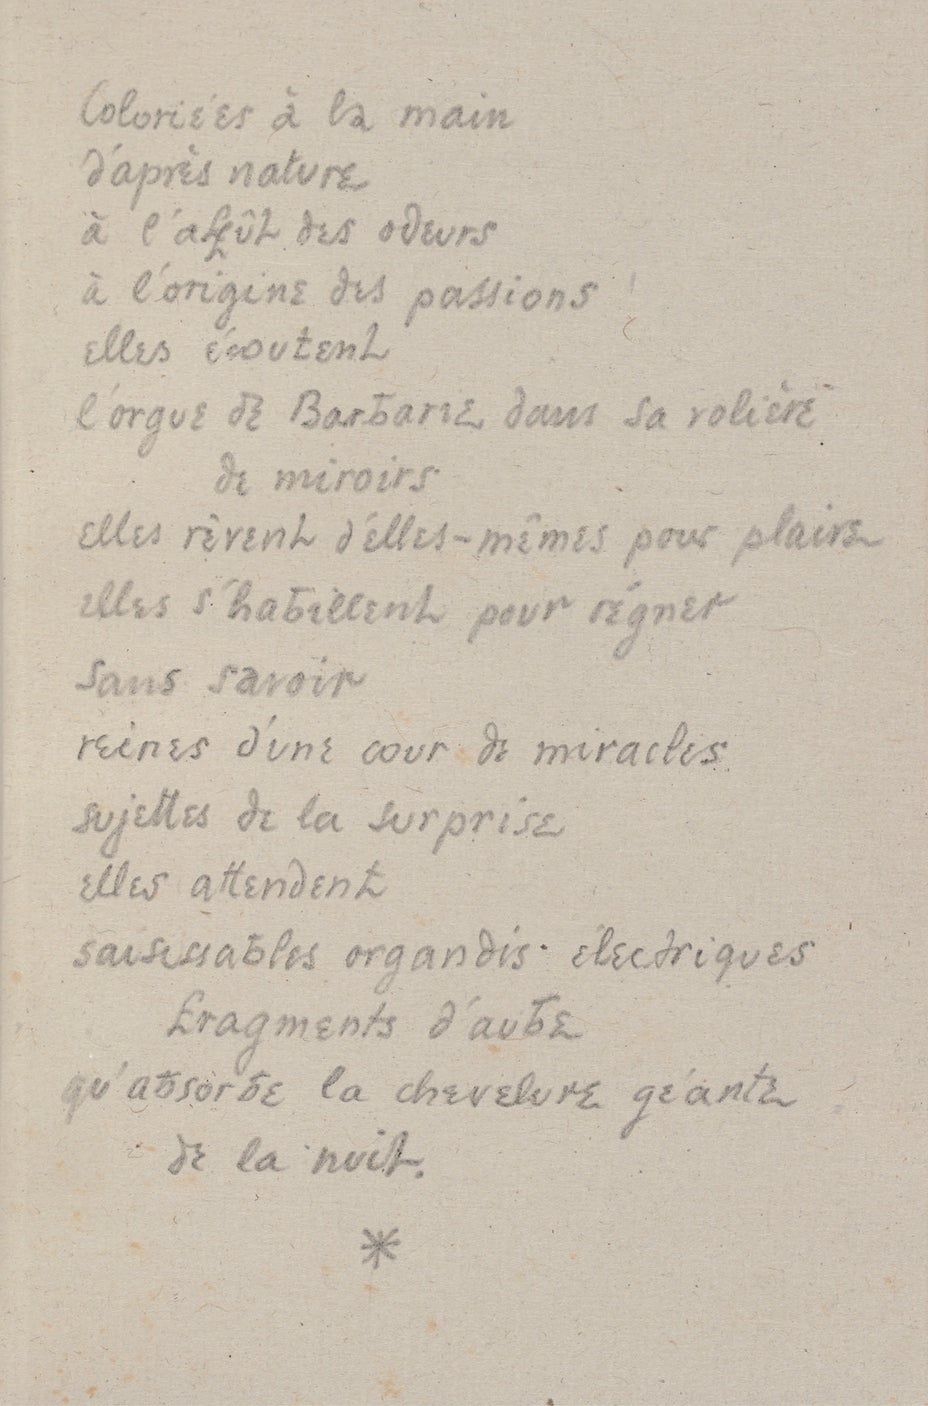 Coloriées à la main
d'après nature
à l'affût des odeurs
à l'origine des passions
elles écoutent
l'orgue de Barbarie dans sa volière
de miroirs
elles rèvent d'elles-mêmes pour plaire
elles s'habillent pour régner
sans savoir
reines d'une cour de miracles
sujettes de la surprise
elles attendent
saisissables organdis électriques
fragments d'aube
qu'absorbe la chevelure géante
de la nuit.
*